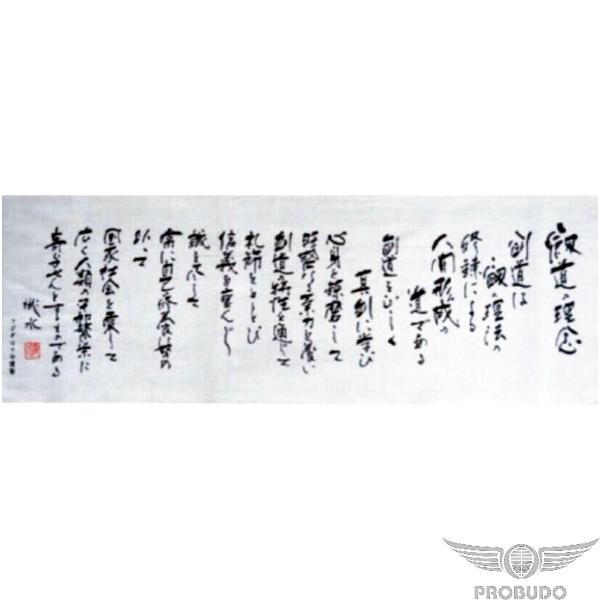 剣道の理念
剣道は
剣の理法の
修錬による
人間形成の
道である
剣道を正しく
真剣に学び
心身を錬磨して
旺盛なる気力を養い
剣道の特性を通じて
礼節をとうとび
信義を重んじ
誠を尽して
常に自己の修養に努め
以って
国家社会を愛して
広く人類の平和繁栄に
寄与せんとするものである
PROBUDO